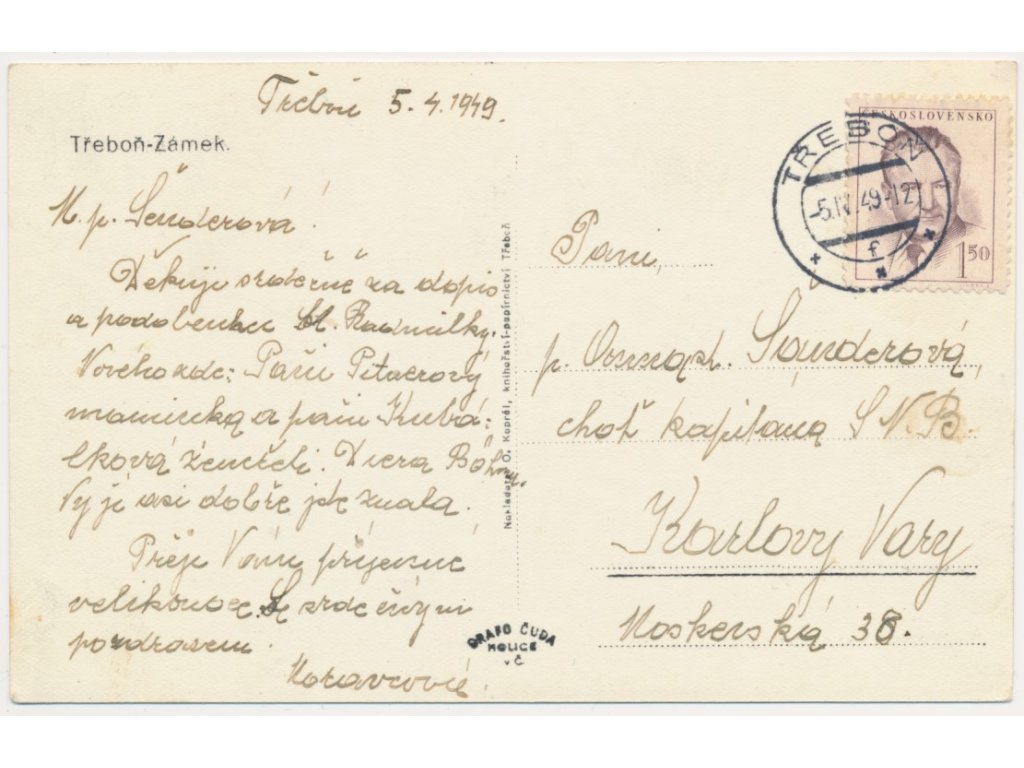 Třeboň 5.4.1949.
Třeboň-Zámek.
M. p. Šenderová!
Děkuji srdečně za dopis
a podobenku Radmilky.
Paní
maminka a paní Kubá-
lková
Vy ji asi dobře jste znala.
Přeje Vám příjemné
velikonoce. Se srdečným
pozdravem.
Nakladatel O. Koprél, knihařství-papírnictví Třeboň
GRAFO ČUDA
HOLICE
v Č
ČESKOSLOVENSKO
1.50
TŘEBOŇ
-5.IV.49-12
f
Paní,
p. Šanderová,
choť kapitána S N. B.
Karlovy Vary
Moskevská 38.